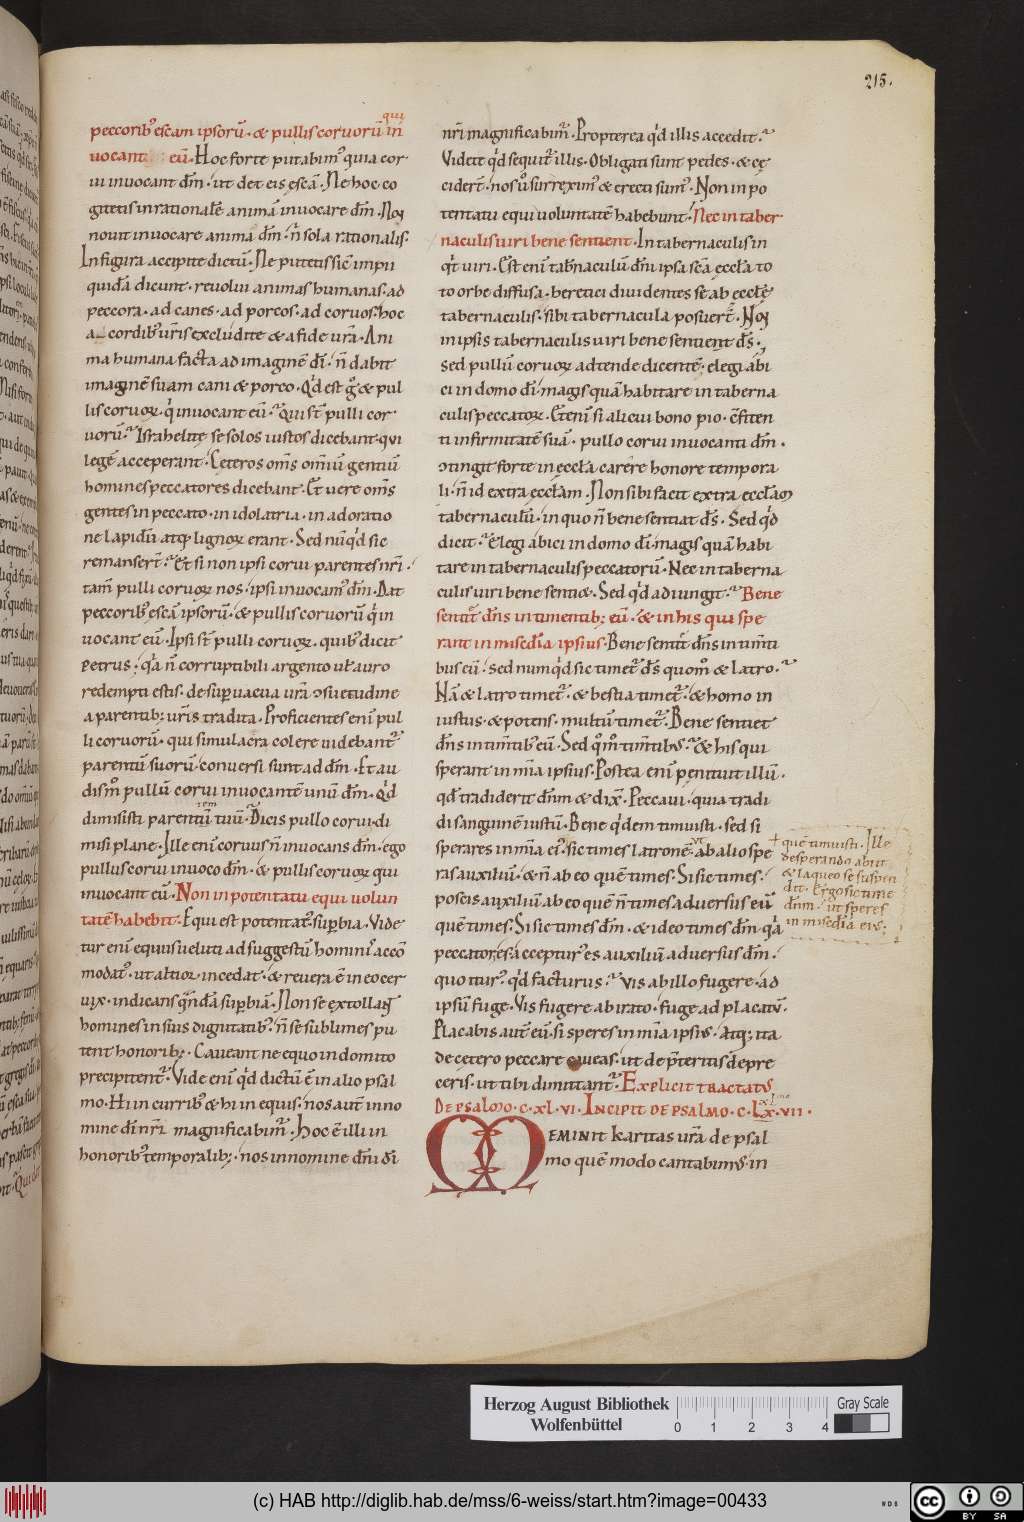 215.
qui
peccorib᷒ escam ipsorū · & pullis coruorū in
uocant eū · Hoc forte putabim᷒ quia cor
ui inuocant dm̄ · ut det eis escā · Ne hoc co
gitetis inrationalē animā inuocare dm̄ · Nō
nouit inuocare anima dm̄ · n̄ sola rationalis ·
In figura accipite dictū · Ne putetis sic̄ impii
quidā dicunt · reuolui animas humanas · ad
peccora · ad canes · ad porcos · ad coruos · hoc
a cordib᷒ uris̄ excludite & a fide urā · Ani
ma humana facta ad imaginē di̅ · n̄ dabit
imaginē suam cani & porco · Qd̓ est g̊ · & pul
lis coruoꝝ · qi̓ inuocant eū · Qui st̄ pulli cor
uorū · Israhelite se solos iustos dicebant · qui
legē acceperant · Ceteros om̄s om̄iū gentiū
homines peccatores dicebant · Et uere om̄s
gentes in peccato · in idolatria · in adoratio
ne lapidū atq; lignoꝝ erant · Sed nūqd̓ sic
remanserт̄ · Et si non ipsi corui parentes nri̅ ·
tam̄ pulli coruoꝝ nos · ipsi inuocam᷒ dm̄ · Dat
peccorib᷒ escā ipsorū · & pullis coruorū qi̓ in
uocant eū · Ipsi st̄ pulli coruoꝝ · quib᷒ dicit
petrus · qa̓ n̄ corruptibili argento uł auro
redempti estis · de supuacua urā ɔsuetudine
a parentib; uris̄ tradita · Proficientes eni̅ pul
li coruorū · qui simulacra colere uidebant᷑
parentū suorū · conuersi sunt ad dm̄ · Et au
dism᷒ pullū corui inuocantē unū dm̄ · Qd̓
rem
dimisisti parentū tuū · Dicis pullo corui · di
misi plane · Ille eni̅ coruus n̄ inuocans dm̄ · ego
pullus corui inuoco dm̄ · & pullis coruoꝝ qui
inuocant eū · Non in potentatu equi uolun
tatē habebit · Equi est potentat᷒ · supbia · Vide
tur eni̅ equus ueluti ad suggestū homini᷒ accō
modat᷒ · ut altior incedat · & reuera ē in eo cer
uix · indicans qn̄dā supbiā · Non se extollant
homines in suis dignitatib᷒ · n̄ se sublimes pu
tent honorib; · Caueant ne equo indomito
precipitent᷑ · Vide eni̅ qd̓ dictū ē in alio psal
mo · Hi in currib᷒ & hi in equis · nos aut̄ in no
mine di̅ nri̅ magnificabim᷒ · Hoc ē illi in
honorib᷒ temporalib; · nos in nomine dni̅ di̅
nri̅ magnificabim᷒ · Propterea qd̓ illis accedit ·
Videte qd̓ sequit᷑ illis · Obligati sunt pedes · & ce
cidert̄ · nos ů surrexim᷒ & erecti sum᷒ · Non in po
tentatu equi uoluntatē habebunt · Nec in taber
naculis uiri bene sentient · In tabernaculis in
qt̓ uiri · Est eni̅ tab̄naculū dni̅ ipsa scā eccła to
to orbe diffusa · heretici diuidentes se ab ecclę
tabernaculis · sibi tabernacula posuert̄ · Nō
in ipsis tabernaculis uiri bene sentient ds̄ ·
sed pullū coruoꝝ adtende dicentē · elegi abi
ci in domo di̅ · magis quā habitare in taberna
culis peccatoꝝ · Eteni̅ si alicui bono pio · ɔfiten
ti infirmitatē suā · pullo corui inuocanti dm̄ ·
ɔtingit forte in eccła carere honore tempora
li · n̄ id extra eccłam · Non sibi facit extra eccłam
tabernaculū · in quo n̄ bene sentiat ds̄ · Sed qd̓
dicit · Elegi abici in domo di̅ · magis quā habi
tare in tabernaculis peccatorū · Nec in taberna
culis uiri bene sentiet · Sed qd̓ adiungit · Bene
sentit̄ dns̄ in timentib; eū · & in his qui spe
rant in misedi̅a ipsius · Bene sentit̄ dns̄ in tim̄ti
bus eū · sed numqd̓ sic timet᷑ ds̄ quom̊ & latro ·
Nā & latro timet᷑ · & bestia timet᷑ · & homo in
iustus · & potens · multū timet᷑ · Bene sentiet
dns̄ in tim̄tib᷒ eū · Sed qm̊ tim̄tib᷒ · & his qui
sperant in mi̅a ipsius · Postea eni̅ penituit illū ·
qd̓ tradiderit dnm̄ & dix̄ · Peccaui · quia tradi
di sanguinē iustū · Bene qd̓em timuisti · sed si
sperares in mi̅a ei᷒ · sic times latronē · ut ab alio spe
ras auxiliū · & n̄ ab eo quē times · Si sic times ·
poscis auxiliū ab eo quē n̄ times aduersus eū
quē times · Si sic times dm̄ · & ideo times dm̄ · qa̓
peccatores · accepturus es auxiliū aduersus dm̄ ·
quo itur᷒ · qd̓ facturus · Vis ab illo fugere · ad
ipsū fuge · Vis fugere ab irato · fuge ad placatū ·
Placabis aut̄ eū · si speres in mi̅a ipsi᷒ · Atq; ita
de cętero peccare caueas · ut de pteritis depre
ceris · ut tibi dimittant᷑ · Explicit tractat᷒
xl mo
De psalmo · c · xl · vi · Incipit de psalmo · c · Lx · vii ·
Meminit karitas urā de psal
mo quē modo cantabim᷒ · in
+ quē timuisti · Ille
desperando abiit
& laqueo se suspen
dit · Ergo sic time
dnm̄ · ut speres
in misedi̅a ei᷒ ·
Herzog August Bibliothek
Wolfenbüttel
0 1 2 3 4
Gray Scale
(c) HAB http://diglib.hab.de/mss/6-weiss/start.htm?image=00433
WDB
cc BY SA